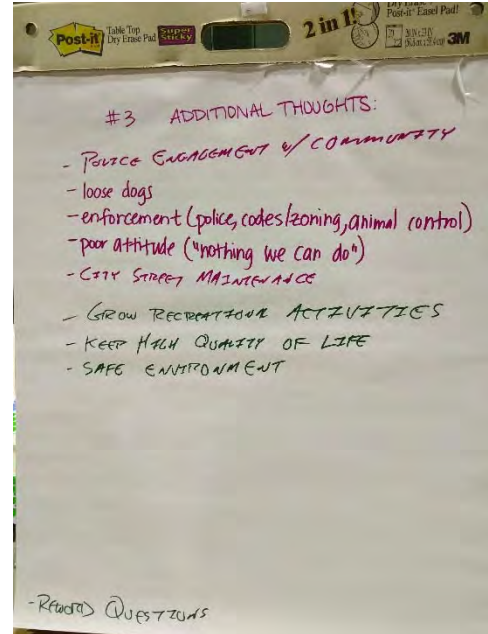 Post-it
Table Top
Dry Erase Pad
Super
Sticky
2 in 1!
Post-it Easel Pad!
3M
#3 ADDITIONAL THOUGHTS:
- POLICE ENGAGEMENT w/ COMMUNITY
- loose dogs
- enforcement (police, codes/zoning, animal control)
- poor attitude ("nothing we can do")
- CITY STREET MAINTENANCE
- GROW RECREATIONAL ACTIVITIES
- KEEP HIGH QUALITY OF LIFE
- SAFE ENVIRONMENT
- REWORD QUESTIONS